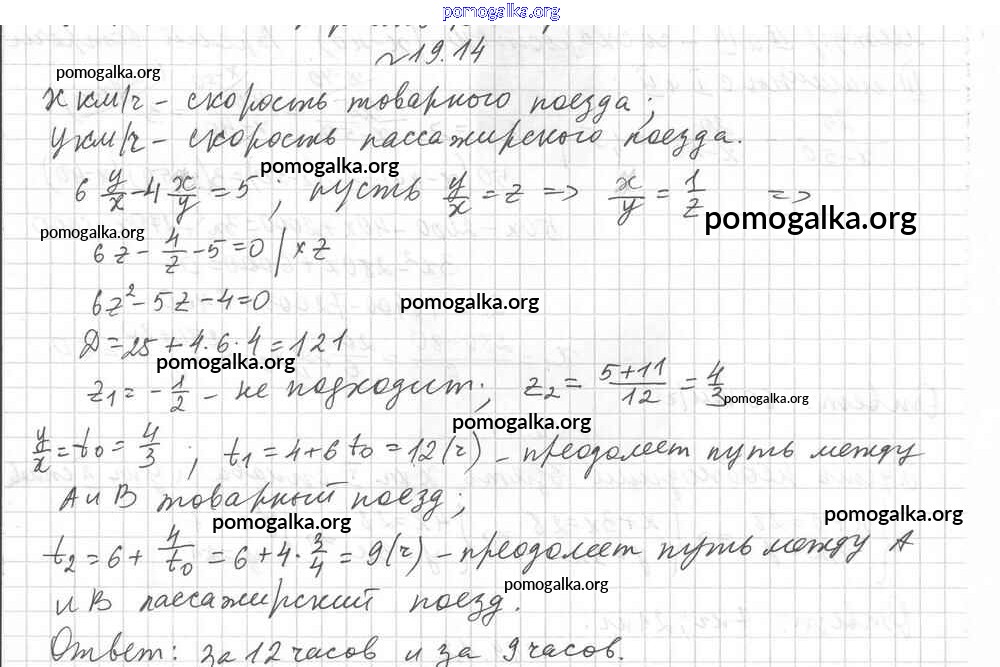 pomogalka.org
№19.14
pomogalka.org
x км/ч – скорость товарного поезда;
y км/ч – скорость пассажирского поезда.
pomogalka.org
6 y/x - 4 x/y = 5; пусть y/x = z => x/y = 1/z =>
pomogalka.org
pomogalka.org
6z - 4/z - 5 = 0 | × z
6z² - 5z - 4 = 0
pomogalka.org
D = 25 + 4·6·4 = 121
pomogalka.org
z₁ = - 1/2 – не подходит; z₂ = (5+11)/12 = 4/3
pomogalka.org
pomogalka.org
y/x = t₀ = 4/3 ; t₁ = 4 + 6 t₀ = 12 (ч) – преодолеет путь между
А и В товарный поезд;
pomogalka.org
pomogalka.org
t₂ = 6 + 4/t₀ = 6 + 4 · 3/4 = 9 (ч) – преодолеет путь между А
pomogalka.org
и В пассажирский поезд.
Ответ: за 12 часов и за 9 часов.